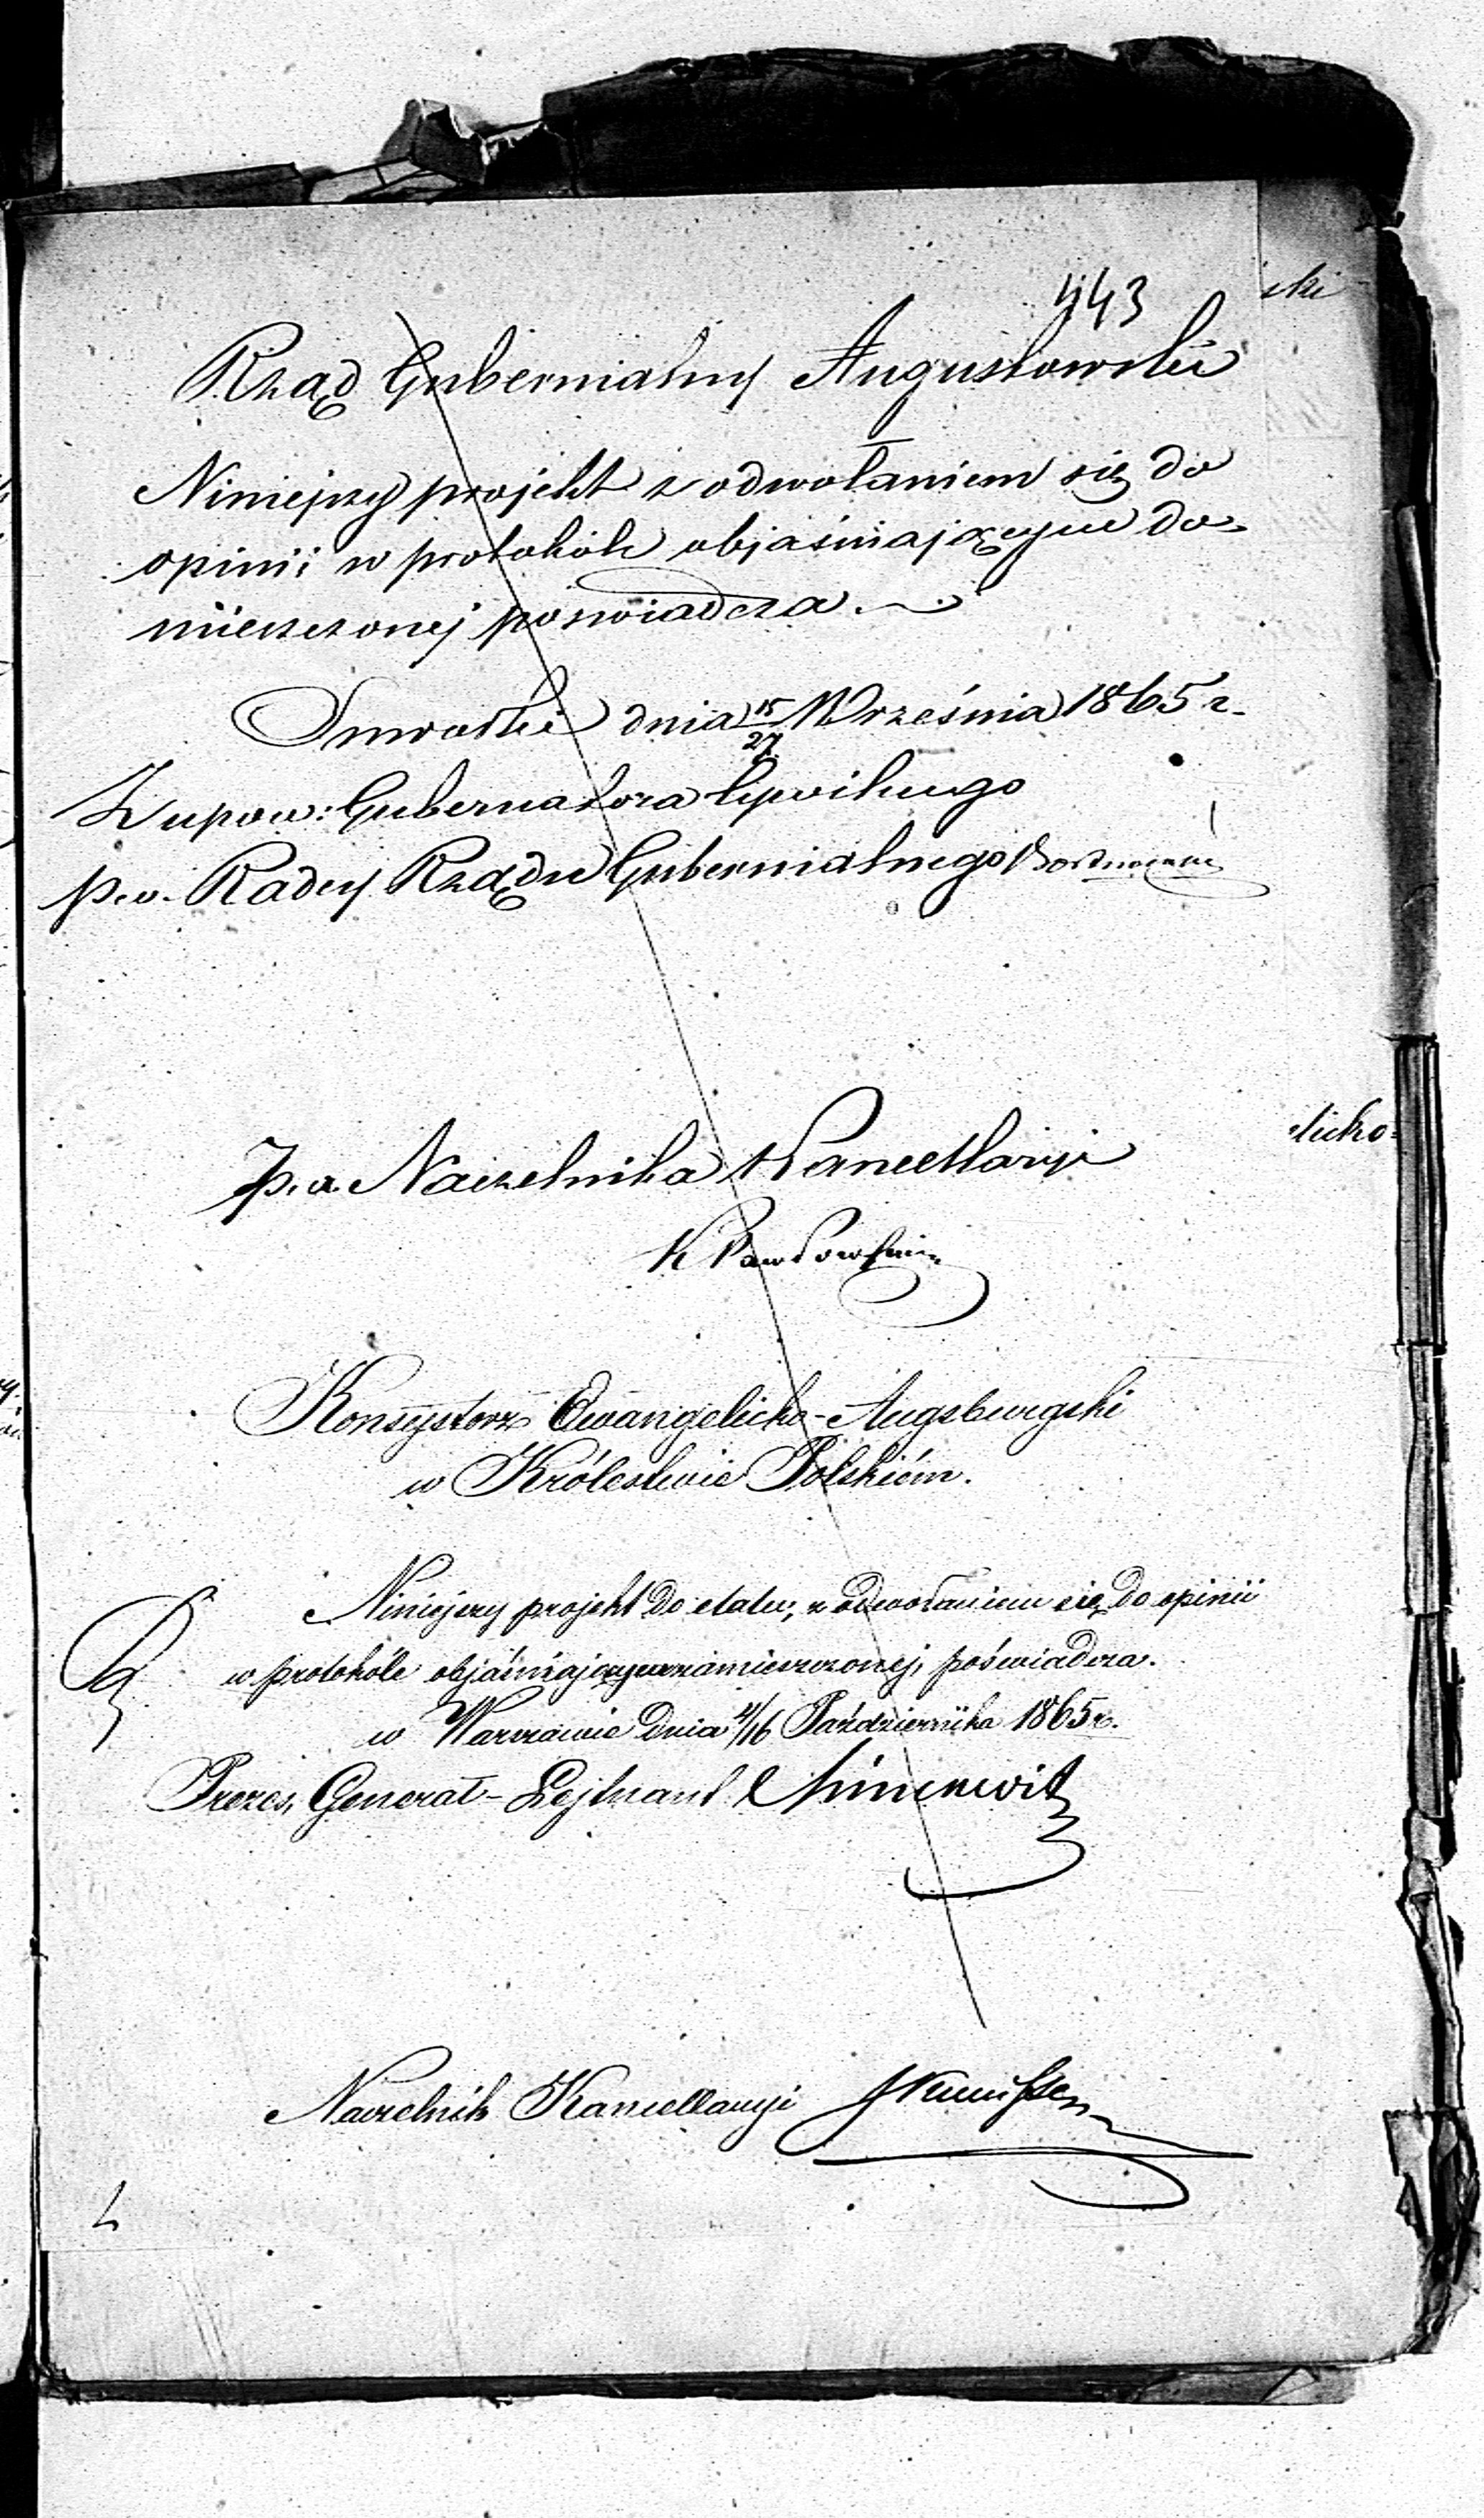 443
ski
Rząd Gubernialny Augustowski
Niniejszy projekt z odwołaniem się do
opinii w protokóle objaśniającym do-
mieszczonej poswiadcza.
Suwałki dnia 15/27 Września 1865 r.
Z upow: Gubernatora Cywilnego
p. o. Radcy Rządu Gubernialnego
licko-
p. o. Naczelnika Kancellaryi
K Pawłowski
Konsystorz Ewangelicko-Augsburgski
w Królestwie Polskiém.
Niniejszy projekt do etatu, z odwołaniem się do opinii
w protokóle objaśniającym zamieszczonej, poświadcza.
w Warszawie dnia 4/16 Października 1865 r.
Prezes, Generał-Lejtnant
Naczelnik Kancellaryi